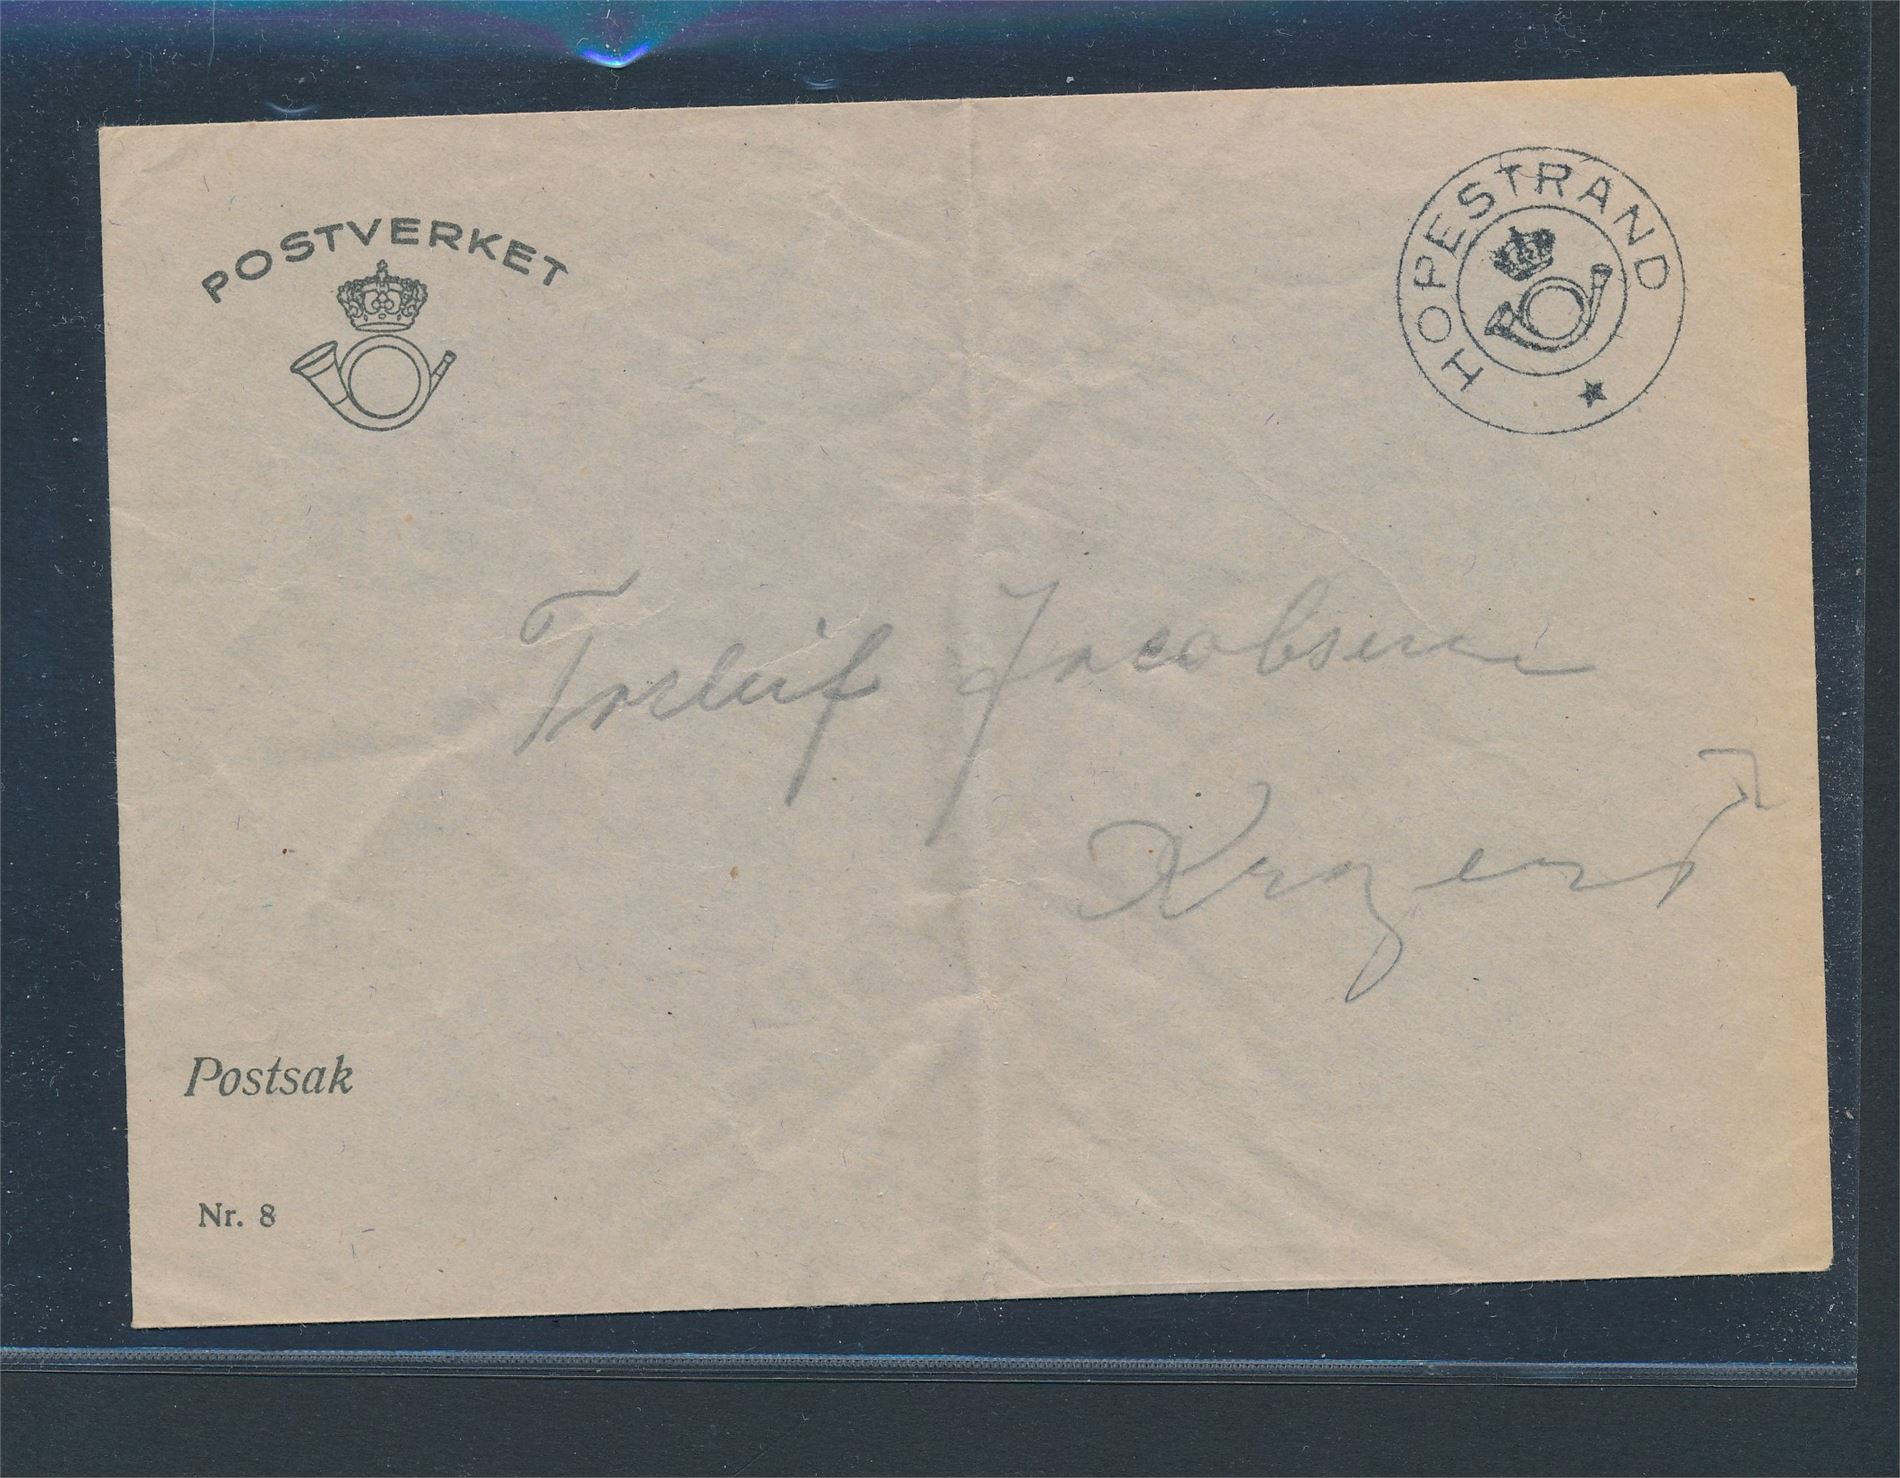 POSTVERKET
HOPESTRAND
Torleif Jacobsen
Postsak
Nr. 8